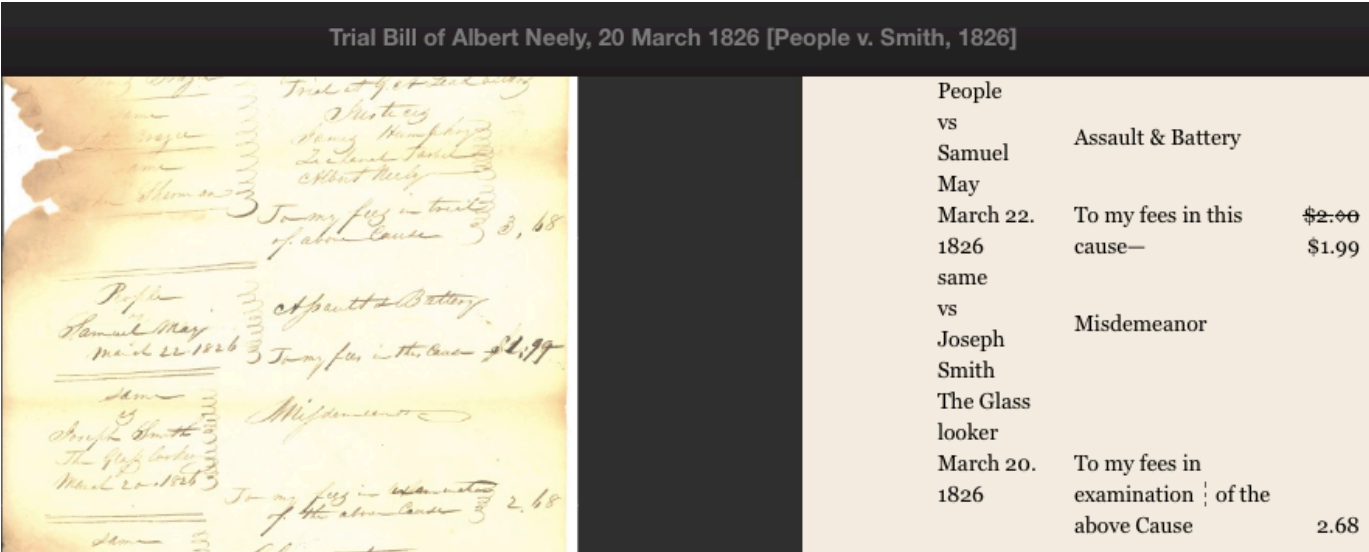 Trial Bill of Albert Neely, 20 March 1826 [People v. Smith, 1826]
same
same
Sherman
Justices
James Humphrey
Albert Neely
To my fees in trial
of above Cause 3,68
People
vs
Samuel May
March 22 1826
Assault & Battery
To my fees in this Cause $1.99
same
vs
Joseph Smith
The Glass looker
March 20 1826
Misdemeanor
To my fees in examination
of the above Cause 2.68
same
People
vs
Samuel
May
Assault & Battery
March 22.
1826
To my fees in this
cause—
$2.00
$1.99
same
vs
Joseph
Smith
The Glass
looker
Misdemeanor
March 20.
1826
To my fees in
examination ¦ of the
above Cause 2.68